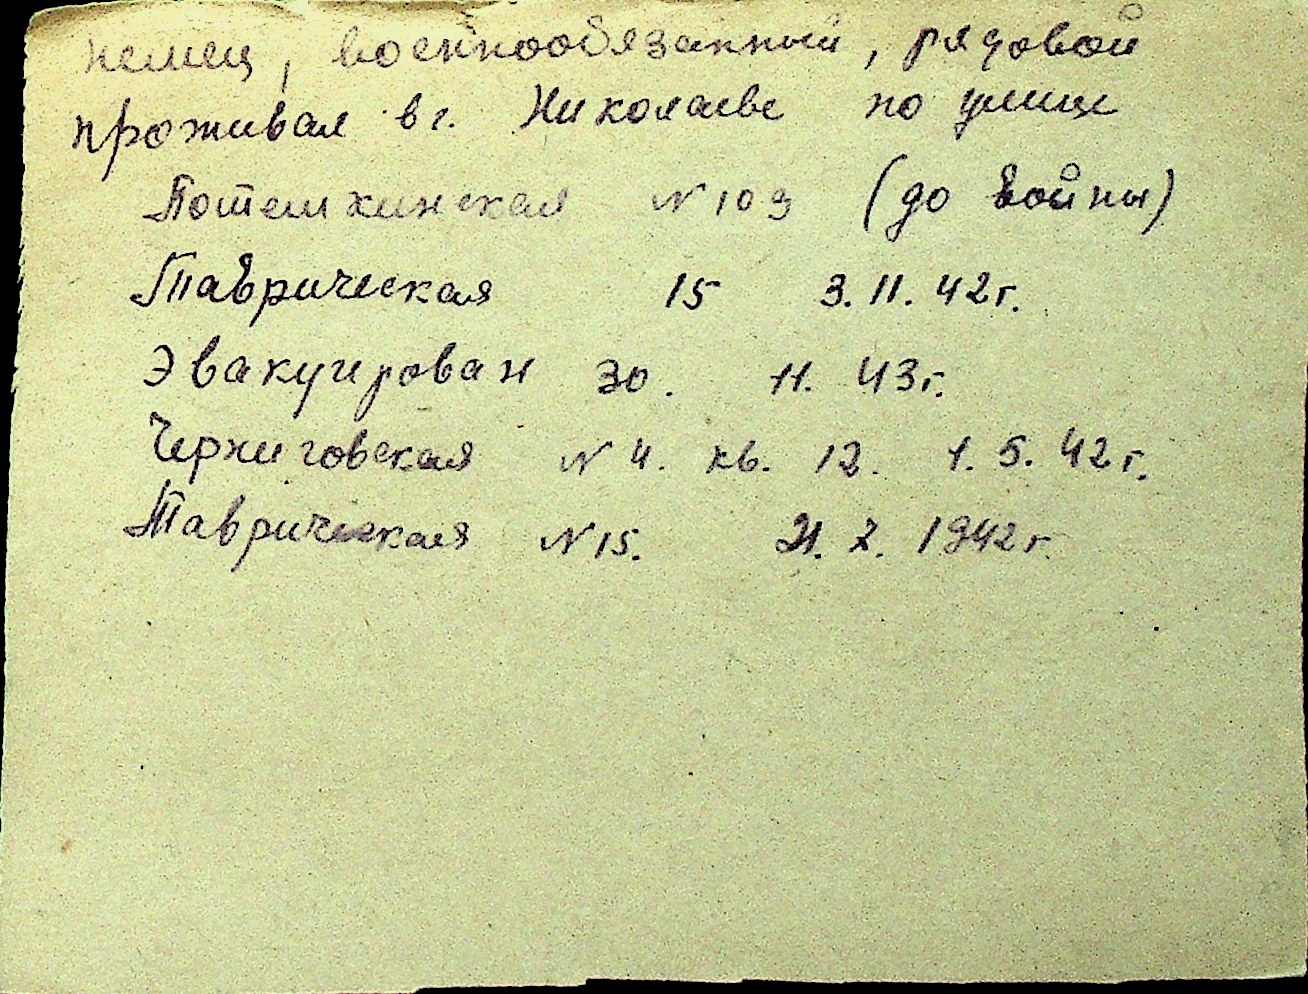 немец, военнообязанный, рядовой
проживал в г. Николаеве по улице
Потемкинская N 109 (до войны)
Таврическая 15 3.11.42г.
Эвакуирован 30. 11. 43г.
Черниговская N 4. кв. 12. 1.5.42г.
Таврическая N 15. 21. X. 1942г.